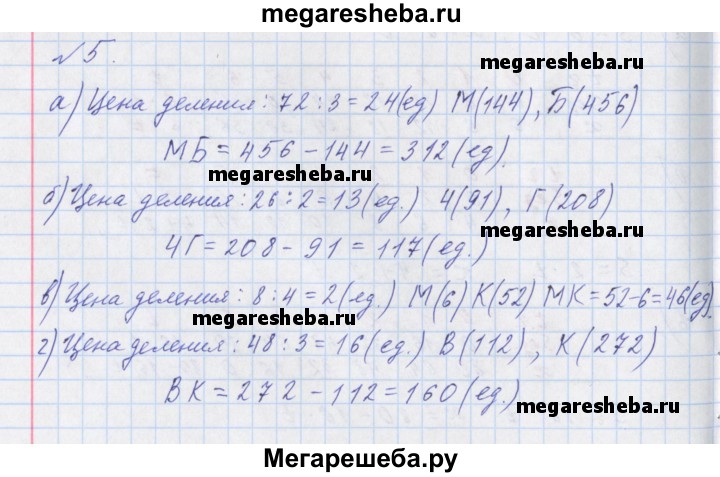 megaresheba.ru
№5.
megaresheba.ru
а) Цена деления: 72:3=24(ед) М(144), Б(456)
МБ=456-144=312(ед).
megaresheba.ru
megaresheba.ru
б) Цена деления: 26:2=13(ед.) Ч(91), Г(208)
megaresheba.ru
ЧГ=208-91=117(ед.)
в) Цена деления: 8:4=2(ед.) М(6) К(52) МК=52-6=46(ед).
megaresheba.ru
megaresheba.ru
г) Цена деления: 48:3=16(ед.) В(112), К(272)
ВК=272-112=160(ед.)
megaresheba.ru
Мегарешеба.ру